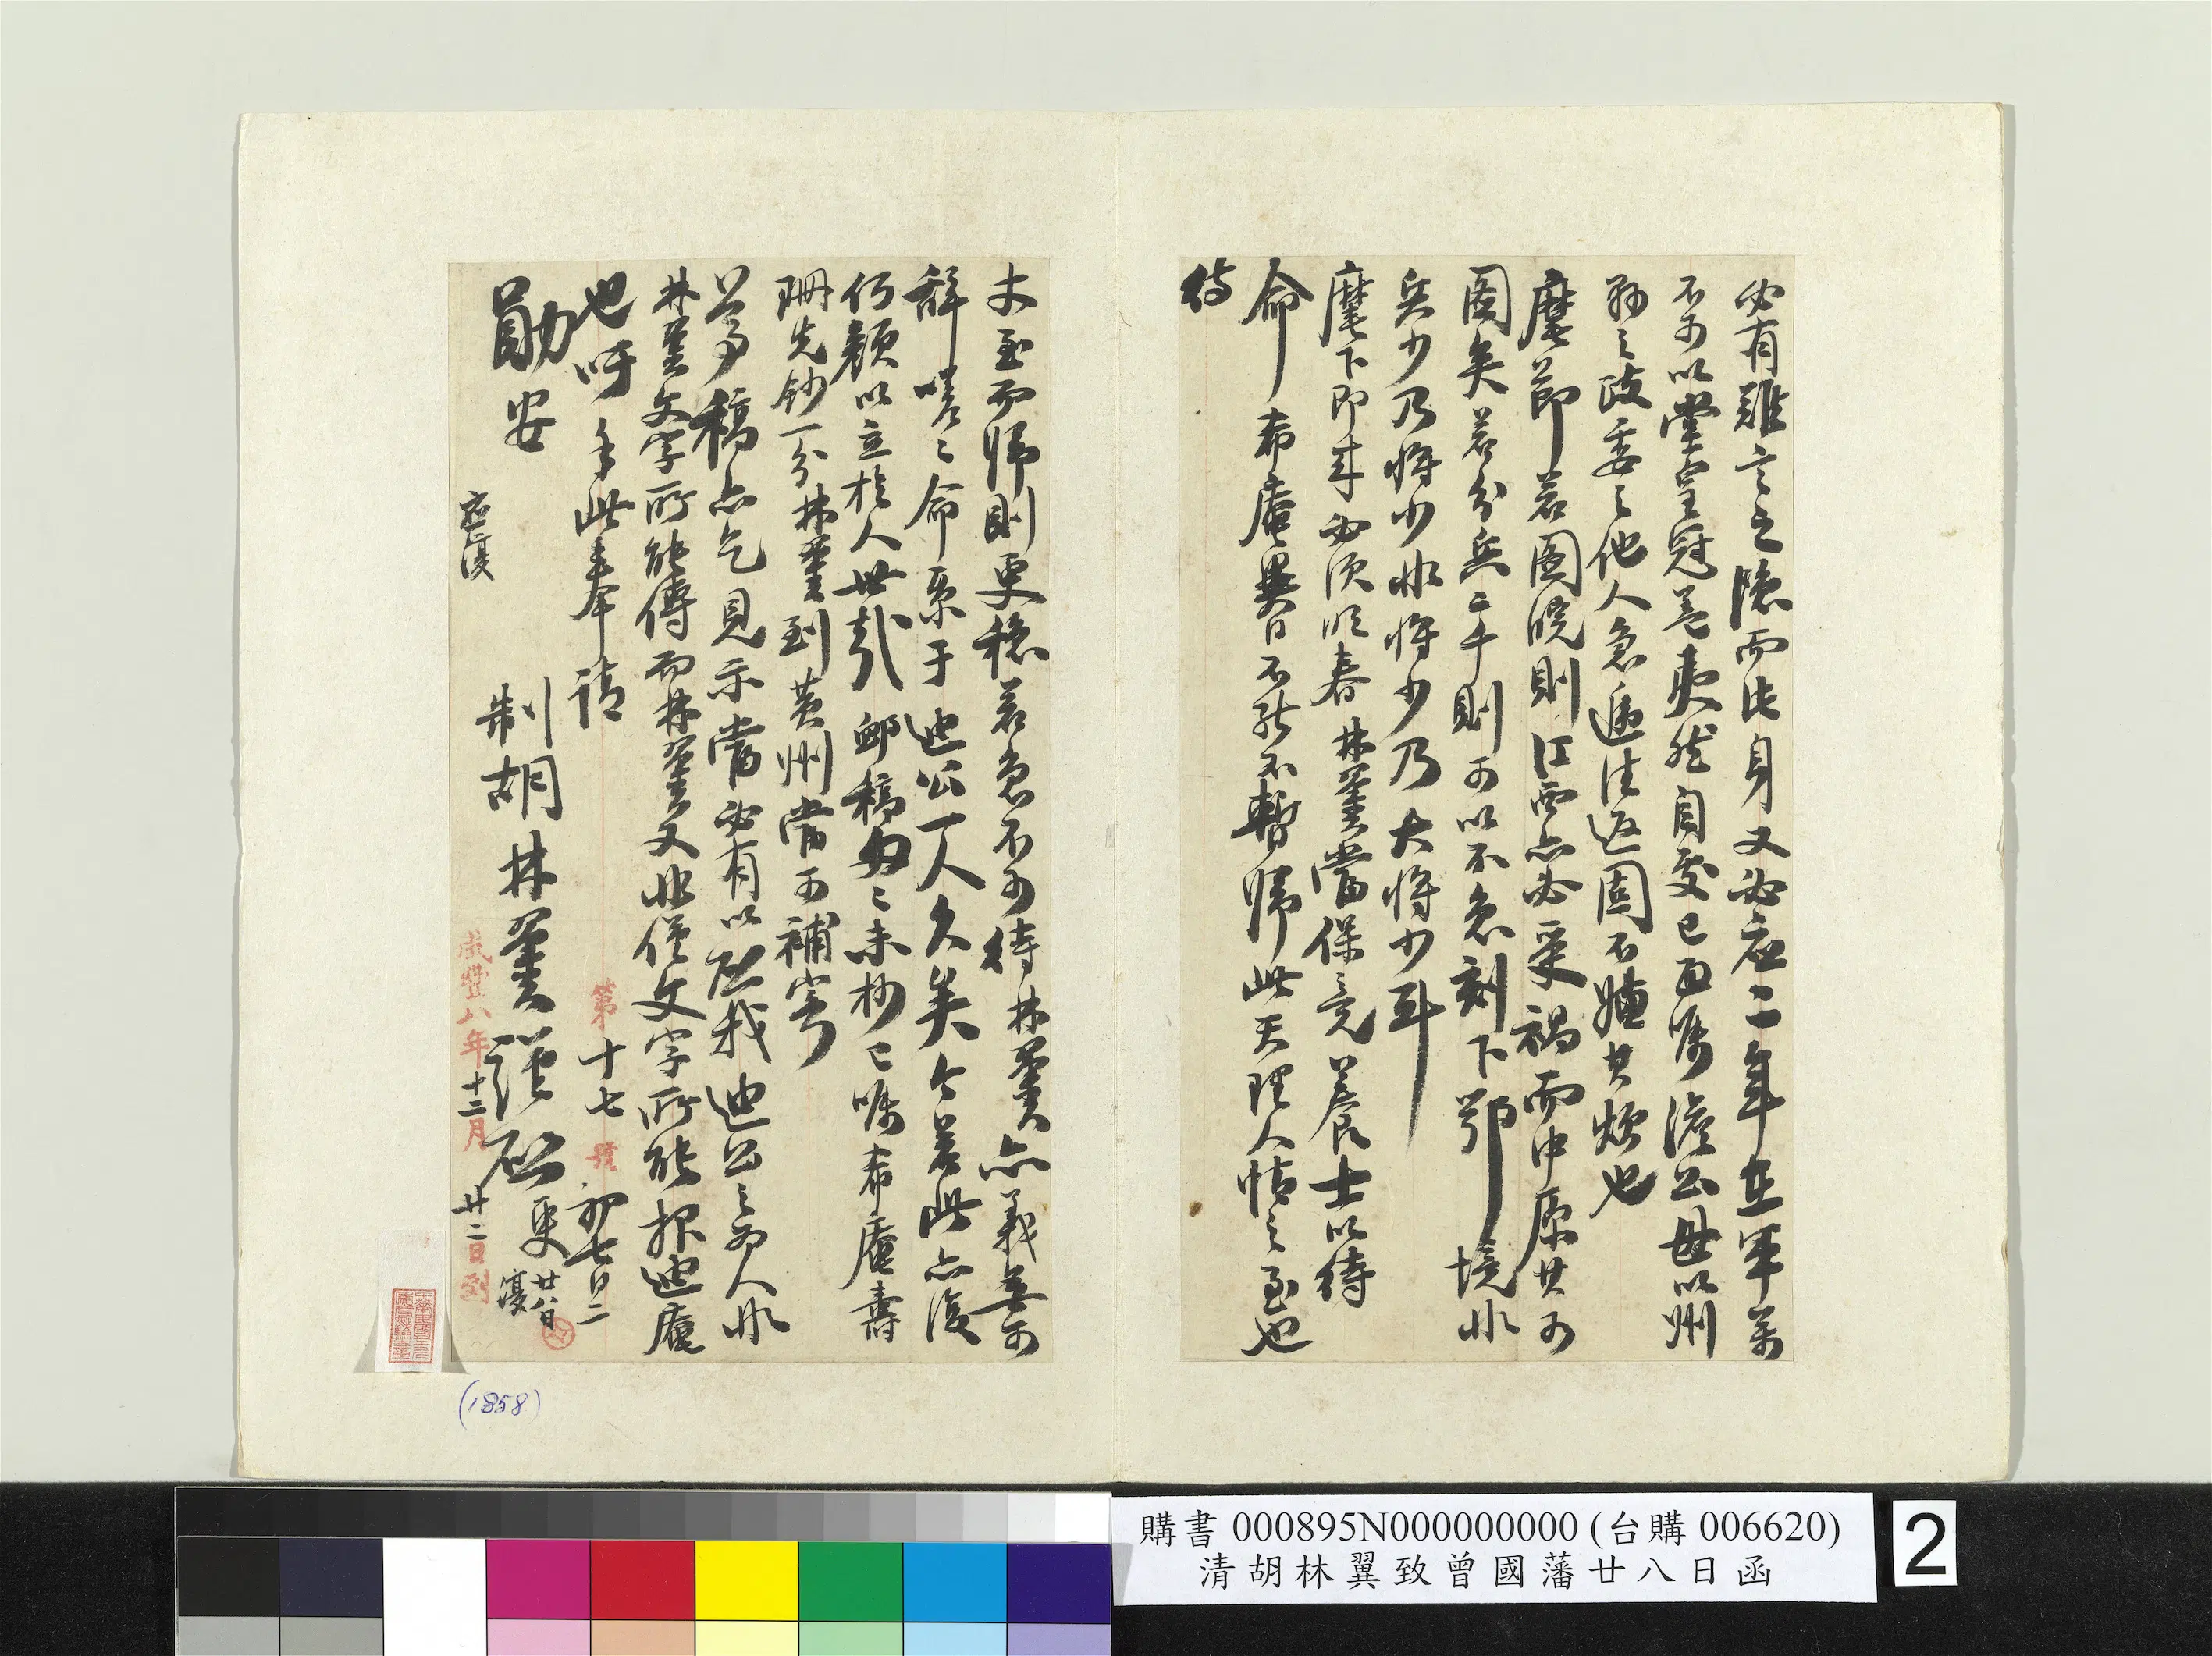 必有難言之隱而此身又必在二年在軍萬
不可以堂皇冠蓋夷然自處已面囑澹公毋以州
縣之政委之他人急遽往返固不嫌其煩也
麾節若圖皖則江西亦必受禍而中原其可
圖矣若分兵二千則可以不急刻下鄂境非
兵少乃將少非將少乃大將少耳
麾下即來必須明春林翼當保境養士以待
命希庵異日不能不暫歸此天理人情之至也
待
未至而歸則更穩若急不可待林翼亦義無可
辭嗟嗟命系于迪公一人久矣今若此亦復
何顏以立於人世哉卹稿匆匆未抄已囑希庵壽
珊先鈔一分林翼到黃州當可補寄
尊稿亦乞見示當必有以啟我迪公之為人非
林翼文字所能傳而林翼又非僅文字所能報迪庵
也呵手此奉請
勛安
制胡林翼謹啟
更
廿八日
復
第十七號
初七日
咸豐八年十二月廿二日到
(1858)
購書 000895N000000000 (台購 006620)
清胡林翼致曾國藩廿八日函
2